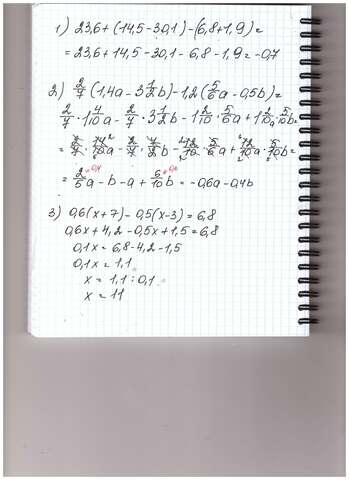 1) 23,6+(14,5-30,1)-(6,8+1,9)=
=23,6+14,5-30,1-6,8-1,9=-0,7
2) 2/7(1,4a-3 1/2b)-1,2(5/6a-0,5b)=
2/7·1 4/10a-2/7·3 1/2b-1 2/10·5/6a+1 2/10·5/10b=
=2/7·14/10a-2/7·7/2b-12/10·5/6a+12/10·5/10b=
=2/5a-b-a+6/10b=-0,6a-0,4b
3) 0,6(x+7)-0,5(x-3)=6,8
0,6x+4,2-0,5x+1,5=6,8
0,1x=6,8-4,2-1,5
0,1x=1,1
x=1,1:0,1
x=11